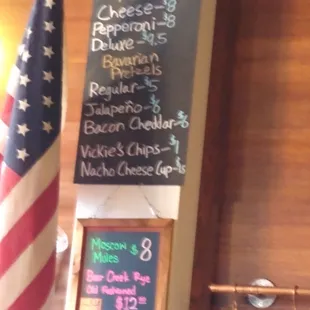 Cheese-$8
Pepperoni-$8
Deluxe-$9.5
Bavarian
Pretzels
Regular-$5
Jalapeño-$6
Bacon Cheddar-$6
Vickie's Chips-$1
Nacho Cheese Cup-$1.5
Moscow $8
Mules
Bear Creek Rye
Old Fashioned
$12